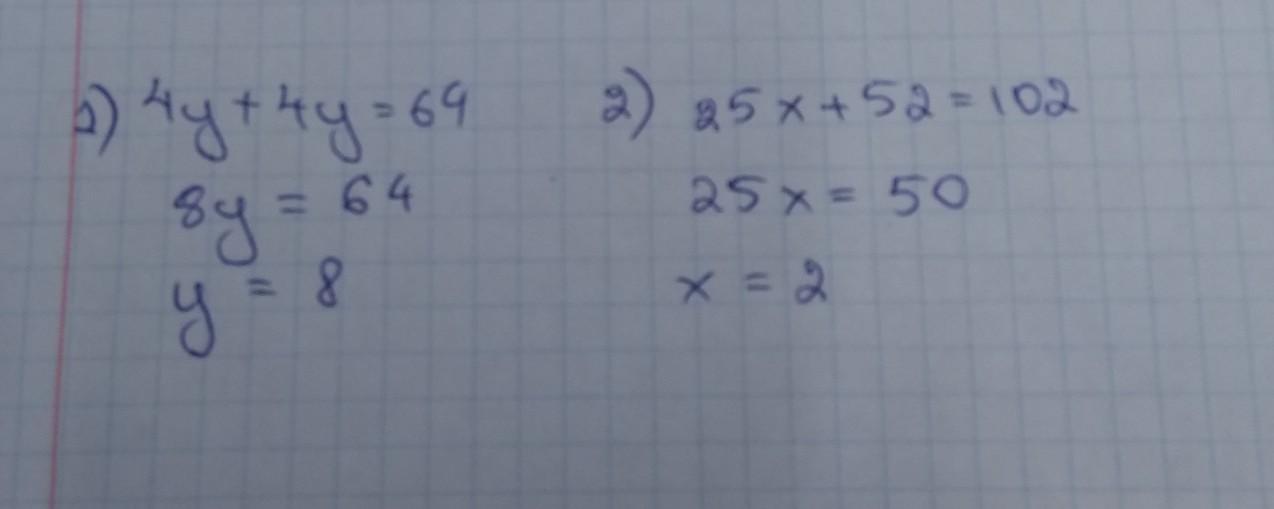 1) 4y + 4y = 64
8y = 64
y = 8
2) 25x + 52 = 102
25x = 50
x = 2